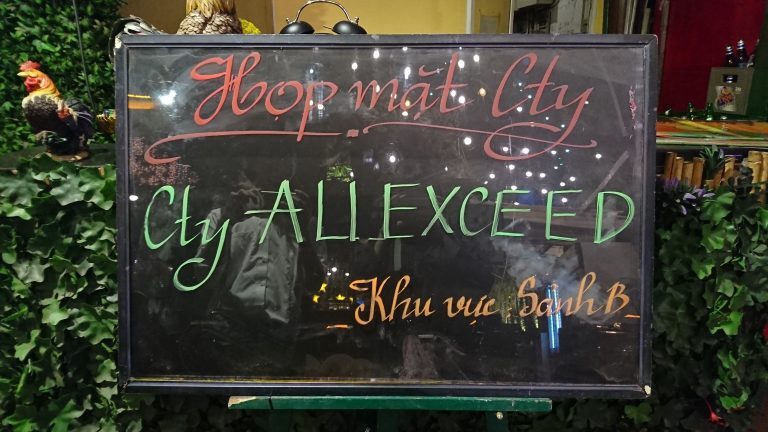 Họp mặt Cty
Cty ALLEXCEED
Khu vực Sảnh B